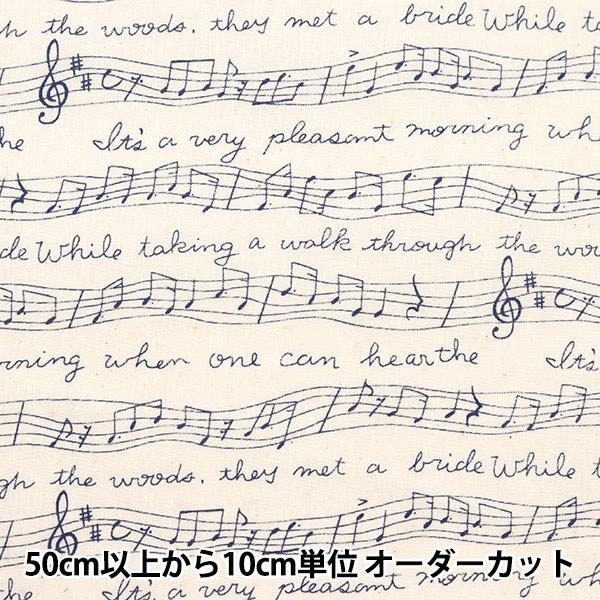 h the woods. they met a bride While ta
he It's a very pleasant morning wh
de While taking a walk through the woo
rning when one can hear the It's
gh the woods. they met a bride While t
he It's a very pleasant morning wh
50cm以上から10cm単位 オーダーカット